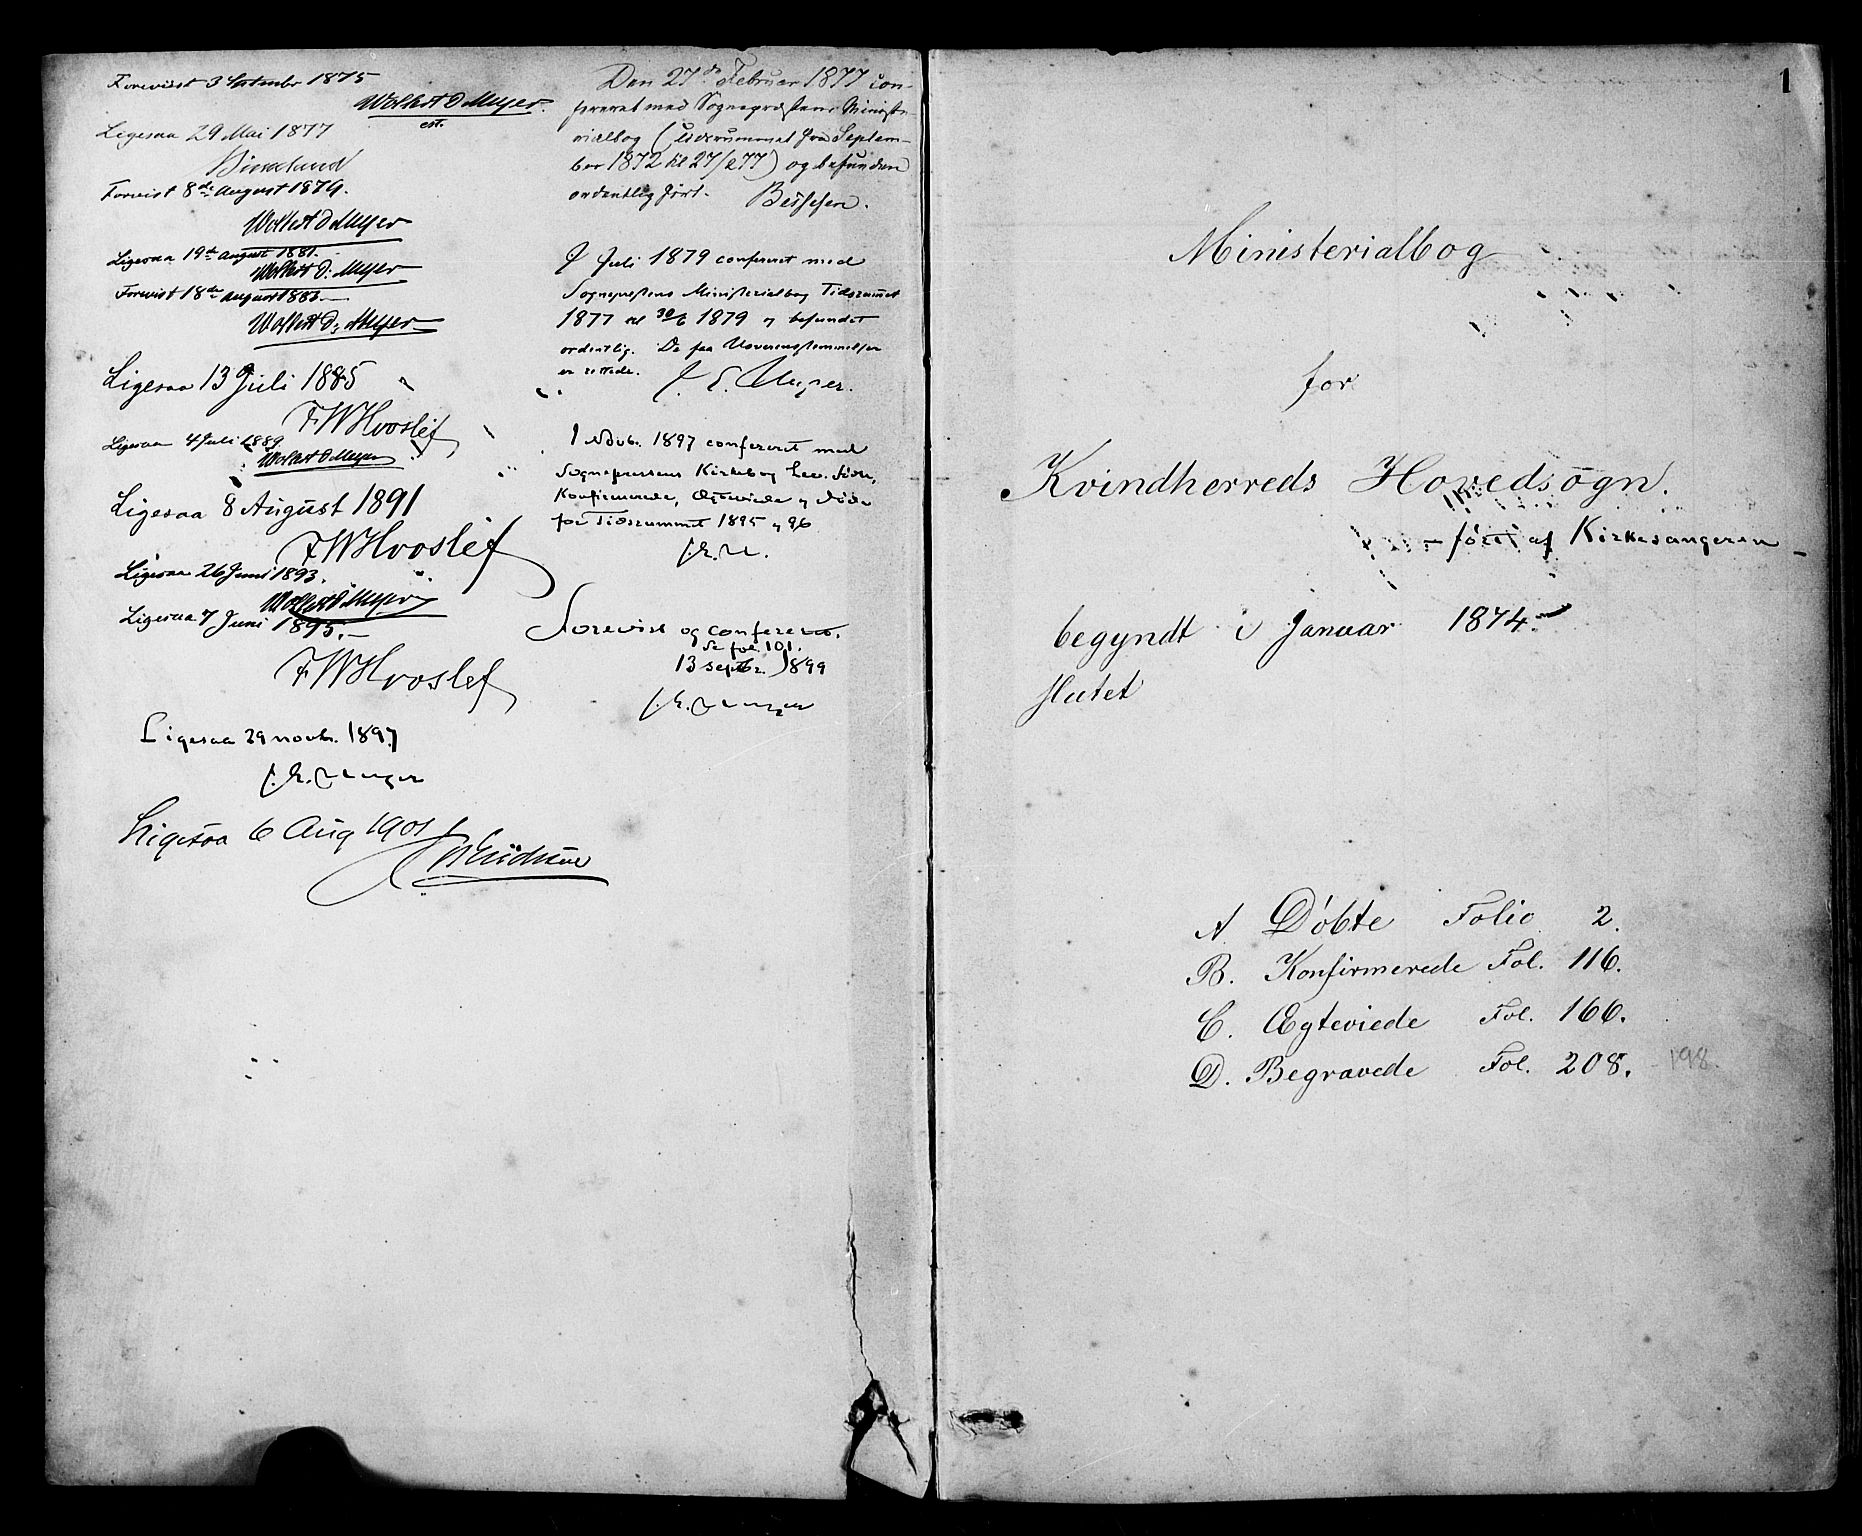 Forevist 3 September 1875
Wollert D Meyer.
Ligesaa 29 Mai 1877
Forevist 8de August 1879.
Wollert D Meyer
Ligesaa 19de august 1881.
Wollert D. Meyer
Forevist 18de august 1883.
Wollert D. Meyer
Ligesaa 13 Juli 1885
F W Hvoslef
Ligesaa 4 Juli 1889
Wollert D Meyer
Ligesaa 8 August 1891
F W Hvoslef
Ligesaa 26 Juni 1893.
Wollert D Meyer
Ligesaa 7 Juni 1895.
F W Hvoslef
Ligesaa 29 novbr. 1897
J. E.
Ligesaa 6 Aug 1901
Den 27de Februar 1877 con-
fereret med Sognepræstens Ministe-
rialbog (Tidsrummet fra Septem-
ber 1872 til 27/2 77) og befunden
ordentlig ført.
Juli 1879 confereret med
Sognepræstens Ministerialbog Tidsrumet
1877 til 30/6 1879 og befundet
ordentlig. De faa Uoverensstemmelser
er rettede.
J. E.
1 Novb. 1897 confereret med
Sognepræstens Kirkebog Lev. Fødte,
Konfirmerede, Ægteviede og døde
for Tidsrummet 1895 og 96
Forevist og confereret.
Se fol. 101.
13 septbr. 1899
J. E.
1
Ministerialbog
for
Kvindherreds Hovedsogn.
- ført af Kirkesangeren -
begyndt i Januar 1874
slutet
A Døbte Folio 2.
B. Konfirmerede Fol. 116.
C. Ægteviede Fol. 166.
D. Begravede Fol. 208. 198.